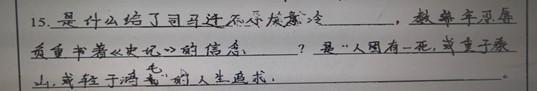 15. 是什么给了司马迁不辱废寡冷，数年辛忍辱
负重书著《史记》的信念，？是“人固有一死，或重于泰
山，或轻于鸿毛”的人生追求。